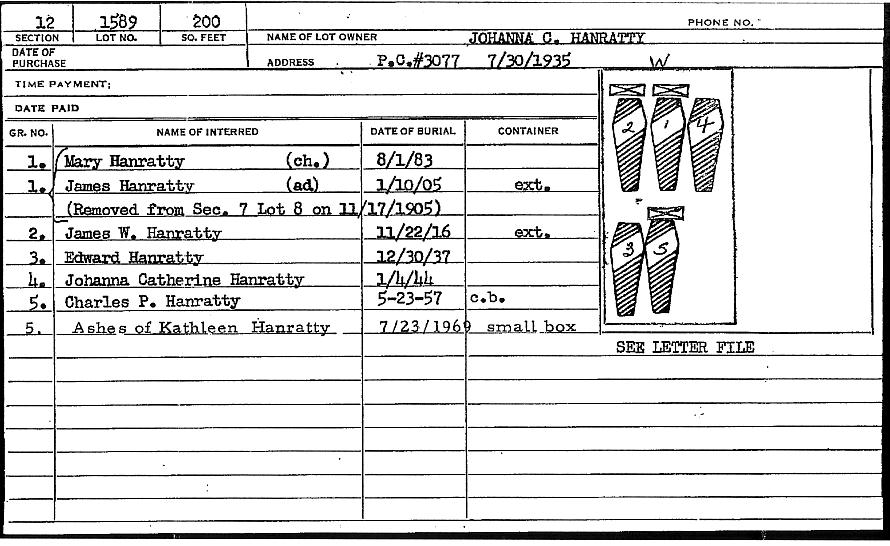 12 1589 200 PHONE NO.
SECTION LOT NO. SQ. FEET NAME OF LOT OWNER JOHANNA C. HANRATTY
DATE OF PURCHASE ADDRESS P.C.#3077 7/30/1935 W
TIME PAYMENT;
DATE PAID
GR. NO. NAME OF INTERRED DATE OF BURIAL CONTAINER
1. Mary Hanratty (ch.) 8/1/83
1. James Hanratty (ad) 1/10/05 ext.
(Removed from Sec. 7 Lot 8 on 11/17/1905)
2. James W. Hanratty 11/22/16 ext.
3. Edward Hanratty 12/30/37
4. Johanna Catherine Hanratty 1/4/44
5. Charles P. Hanratty 5-23-57 c.b.
5. Ashes of Kathleen Hanratty 7/23/1969 small box
2 1 4
3 5
SEE LETTER FILE